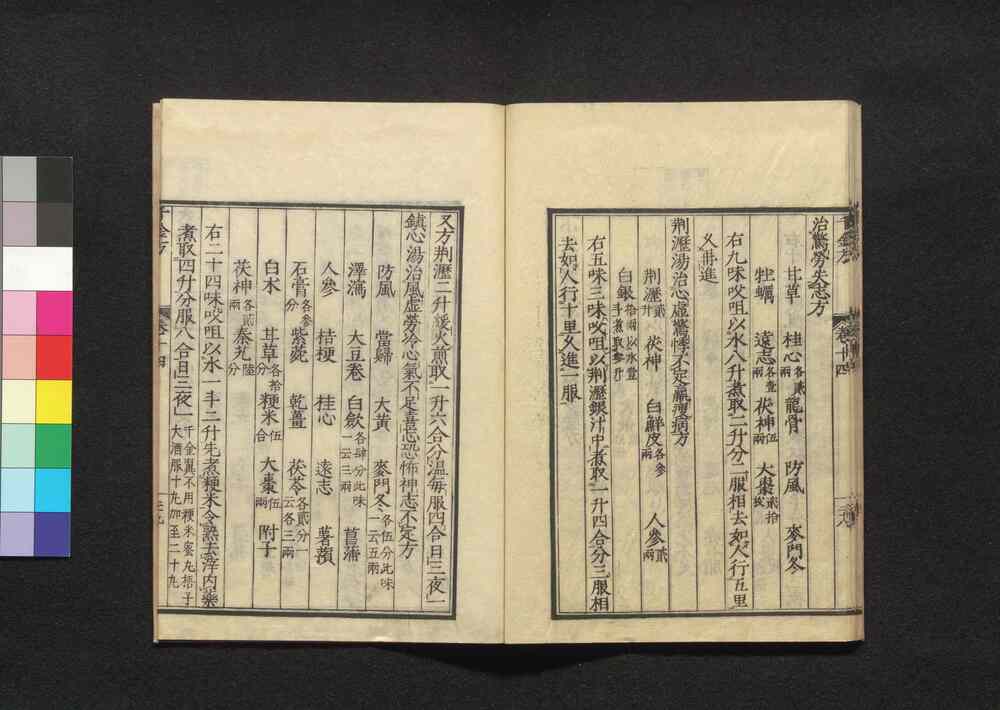 治驚勞失志方
甘草 桂心各貳兩 龍骨 防風 麥門冬
牡蠣 遠志各壹兩 茯神伍兩 大棗貳拾枚
右九味㕮咀以水八升煮取二升分二服相去如人行五里
又一進
荆瀝湯治心虛驚悸不定羸瘦病方
荆瀝貳升 茯神 白鮮皮各參兩 人參貳兩
白銀拾兩以水壹斗煮取參升
右五味三味㕮咀以荆瀝銀汁中煮取一升四合分三服相
去如人行十里又進一服
又方荆瀝二升緩火煎取一升六合分溫每服四合日三夜一
鎮心湯治風虛勞冷心氣不足喜忘恐怖神志不定方
防風 當歸 大黃 麥門冬各伍分此味一云五兩
澤瀉 大豆卷 白斂各肆分此味一云三兩 菖蒲
人參 桔梗 桂心 遠志 薯蕷
石膏各參分 紫菀 乾薑 茯苓各貳分一云各三兩
白朮 甘草各拾分 粳米伍合 大棗伍兩 附子
茯神各貳兩 秦艽陸分
右二十四味㕮咀以水一斗二升先煮粳米令熟去滓内藥
煮取四升分服八合日三夜一千金翼不用粳米蜜丸梧子大酒服十九加至二十九
千金方
卷十四